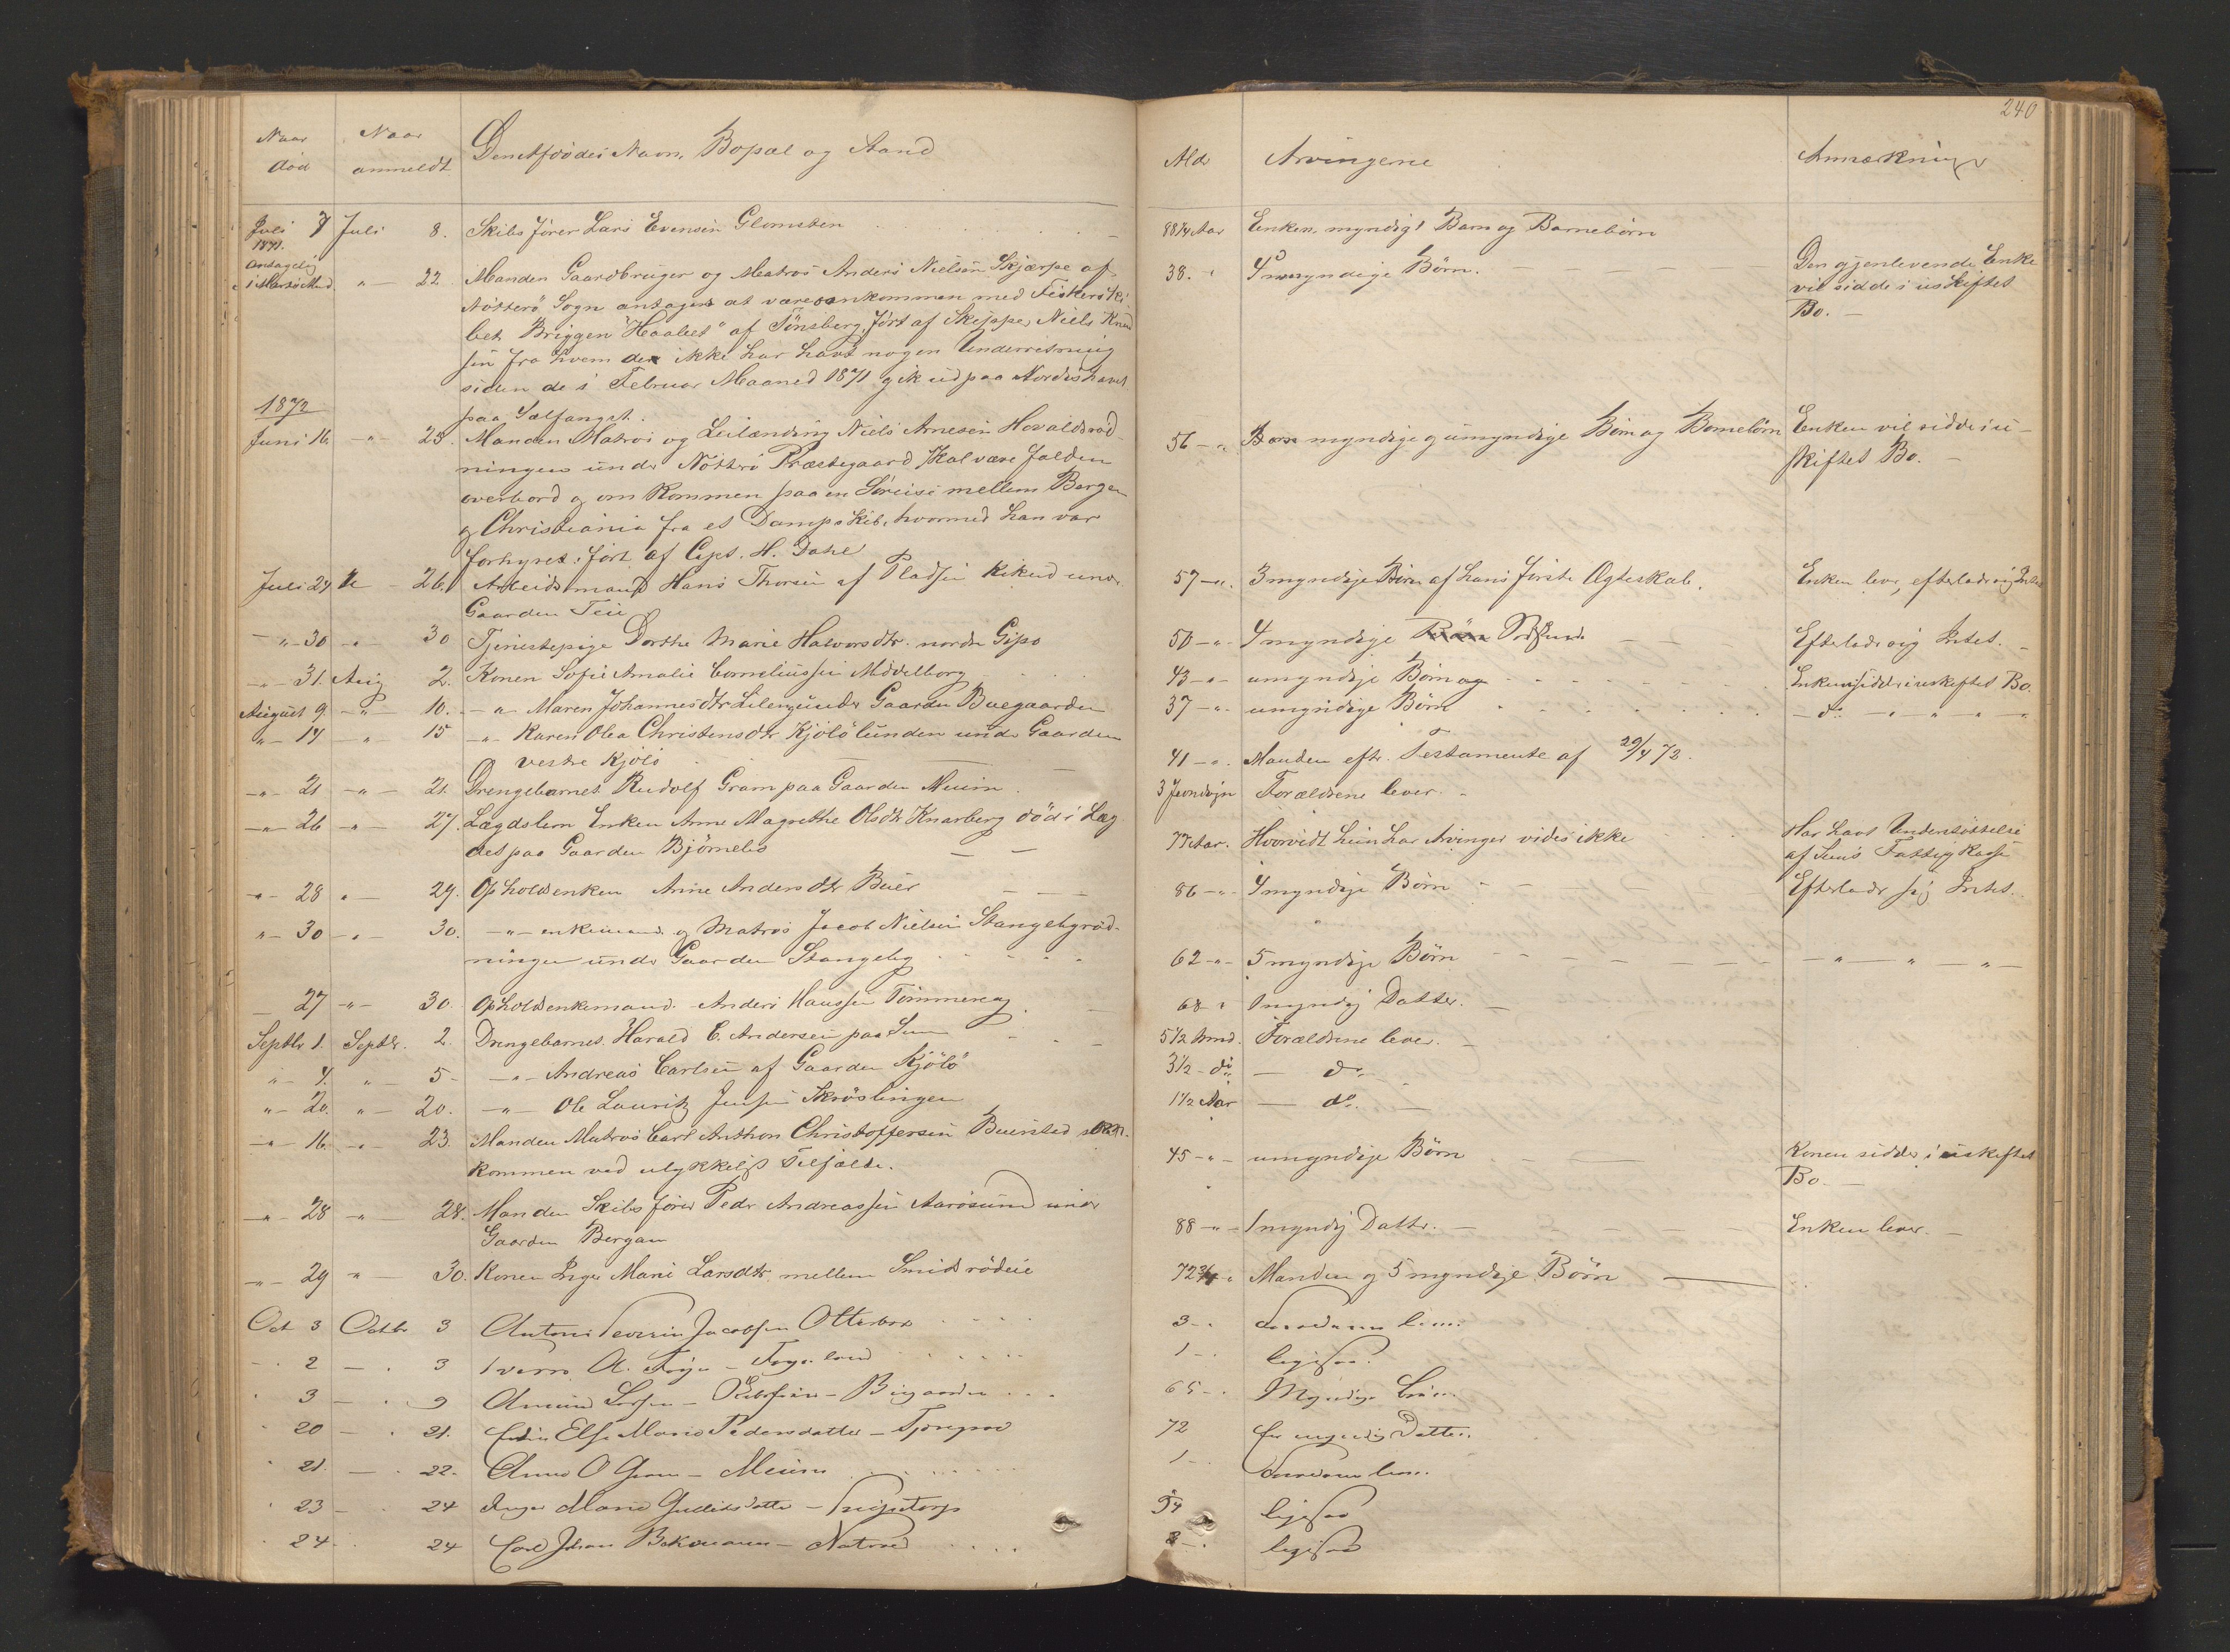 240
Naar død
Naar anmeldt
Den Afdødes Navn, Bopæl og Stand
Alder
Arvingerne
Anmærkning
Juli 7 Juli 8. Skibsfører Lars Evensen Glomsten 88 1/4 Aar Enken, myndigt Barn og Barnebørn
1871.
Antagelig
i Marts Mnd. " 22. Manden Gaardbruger og Matros Anders Nielsen Skjerpe af 38. " 4 umyndige Børn. Den gjenlevende Enke
Nøtterø Sogn antages at være omkommen med Fiskerski vil sidde i uskiftet
bet Briggen "Haabet" af Tønsberg, ført af Skipper Niels Knud Bo.
sen fra hvem der ikke har havt nogen Underretning
siden de i Februar Maaned 1871 gik ud paa Nordishavet
paa Sælfangst.
1872
Juni 16. " 25. Manden Matros og Leilænding Niels Arnesen Hovaldsrød 56 " myndige og umyndige Børn og Barnebørn Enken vil sidde i u-
ningen under Nøtterø Præstegaard skal være falden skiftet Bo.
overbord og omkommen paa en Søreise mellem Bergen
og Christiania fra et Dampskib, hvormed han var
forhyret, ført af Capt. H. Dahl
Juli 24 " 26. Arbeidsmand Hans Thorsen af Pladsen Kikud under 57 " 3 myndige Børn af hans første Ægteskab. Enken lever, efterlader sig Intet
Gaarden Teie
" 30 " 30 Tjenestepige Dorthe Marie Halvorsdtr. nordre Gipø 50 " 4 myndige Børn Sødskende Efterlader sig Intet.
" 31. Aug 2. Konen Sofie Amalie Corneliussen Middelborg 43 " umyndige Børn og Enkem. sidder i uskiftet Bo.
August 9 " 10. " Maren Johannesdtr Lileng under Gaarden Buegaarden 37 " umyndige Børn do " " "
" 14 " 15 " Karen Olea Christensdtr Kjølølunden under Gaarden
vestre Kjølø 41 " Manden efter Testamente af 29/4 72.
" 21 " 21. Drengebarnet Rudolf Gram paa Gaarden Meum 3 Forældrene lever.
" 26 " 27. Lægdslem Enken Anne Magrethe Olsdtr Knarberg død i Læg 77 Aar. Hvorvidt hun har Arvinger vides ikke Har havt Understøttelse
det paa Gaarden Bjørnebo af Sems Fattigkasse
" 28 " 29. Opholdsenken Anne Andersdtr Buer 86 " 4 myndige Børn Efterlader sig Intet.
" 30 " 30. " enkemand og Matros Jacob Nielsen Stangebyrød-
ningen under Gaarden Stangeby 62 " 5 myndige Børn " " "
27 " 30. Opholdsenkemand Anders Hansen Tømmeraas 68 " 1 myndig Datter.
Septbr 1. Septbr. 2. Drengebarnet Harald E. Andersen paa Sem 5 1/2 Mnd. Forældrene lever.
" 4. " 5 " Andreas Carlsen af Gaarden Kjølø 3 1/2 do do
" 20. " 20. " Ole Lauritz Jensen Skrøslingen 1 1/2 Aar do
" 16. " 23. Manden Matros Carl Anthon Christoffersen Buerstad om 45 " umyndige Børn Konen sidder i uskiftet
kommen ved ulykkeligt Tilfælde. Bo.
" 28 " 28. Manden Skibsfører Peder Andreassen Aarøsund under 88 " 1 myndig Datter. Enken lever.
Gaarden Bergan
" 29 " 30. Konen Inger Marie Larsdtr. mellem Smidsrødeie 72 3/4 " Manden og 5 myndige Børn
Oct 3 Octbr 3 Anton Severin Jacobsen Otterbæk 3 " Forældrene lever.
2 3 1 " ligesaa.
3 9 65 " Myndige Børn
20 21. Enken Else Marie Pedersdatter 72 En myndig Datter.
21. 22. Anna O Gram - Meum 1 " Forældrene lever.
23 24 Inger Marie 54 ligesaa
24 24 Carl Johan ligesaa